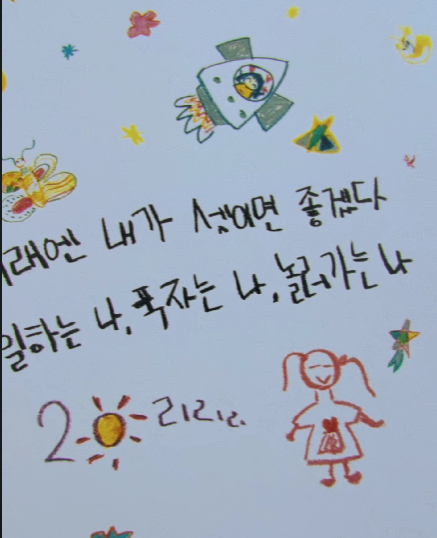 미래엔 내가 셋이면 좋겠다
일하는 나, 푹자는 나, 놀러가는 나
20 리리리..